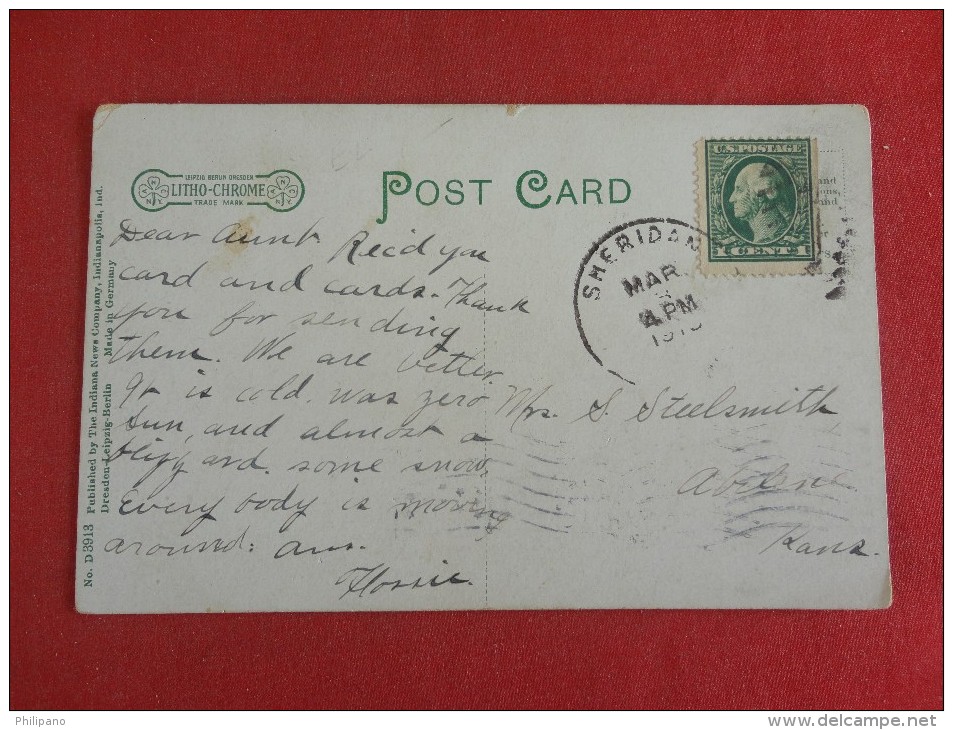 LEIPZIG BERLIN DRESDEN
LITHO-CHROME
TRADE MARK
POST CARD
U.S. POSTAGE
1 CENT 1
SHERIDAN
MAR
4 PM
Dear Aunt. Rec'd you
card and cards. Thank
you for sending
them. We are better.
It is cold. was zero
Sun, and almost a
blizzard. some snow.
Every body is moving
around: ans.
Flossie.
Mrs. S. Steelsmith
Abilene
Kans.
No. D 3913 Published by The Indiana News Company, Indianapolis, Ind.
Dresden-Leipzig-Berlin Made in Germany
Philipano
www.delcampe.net